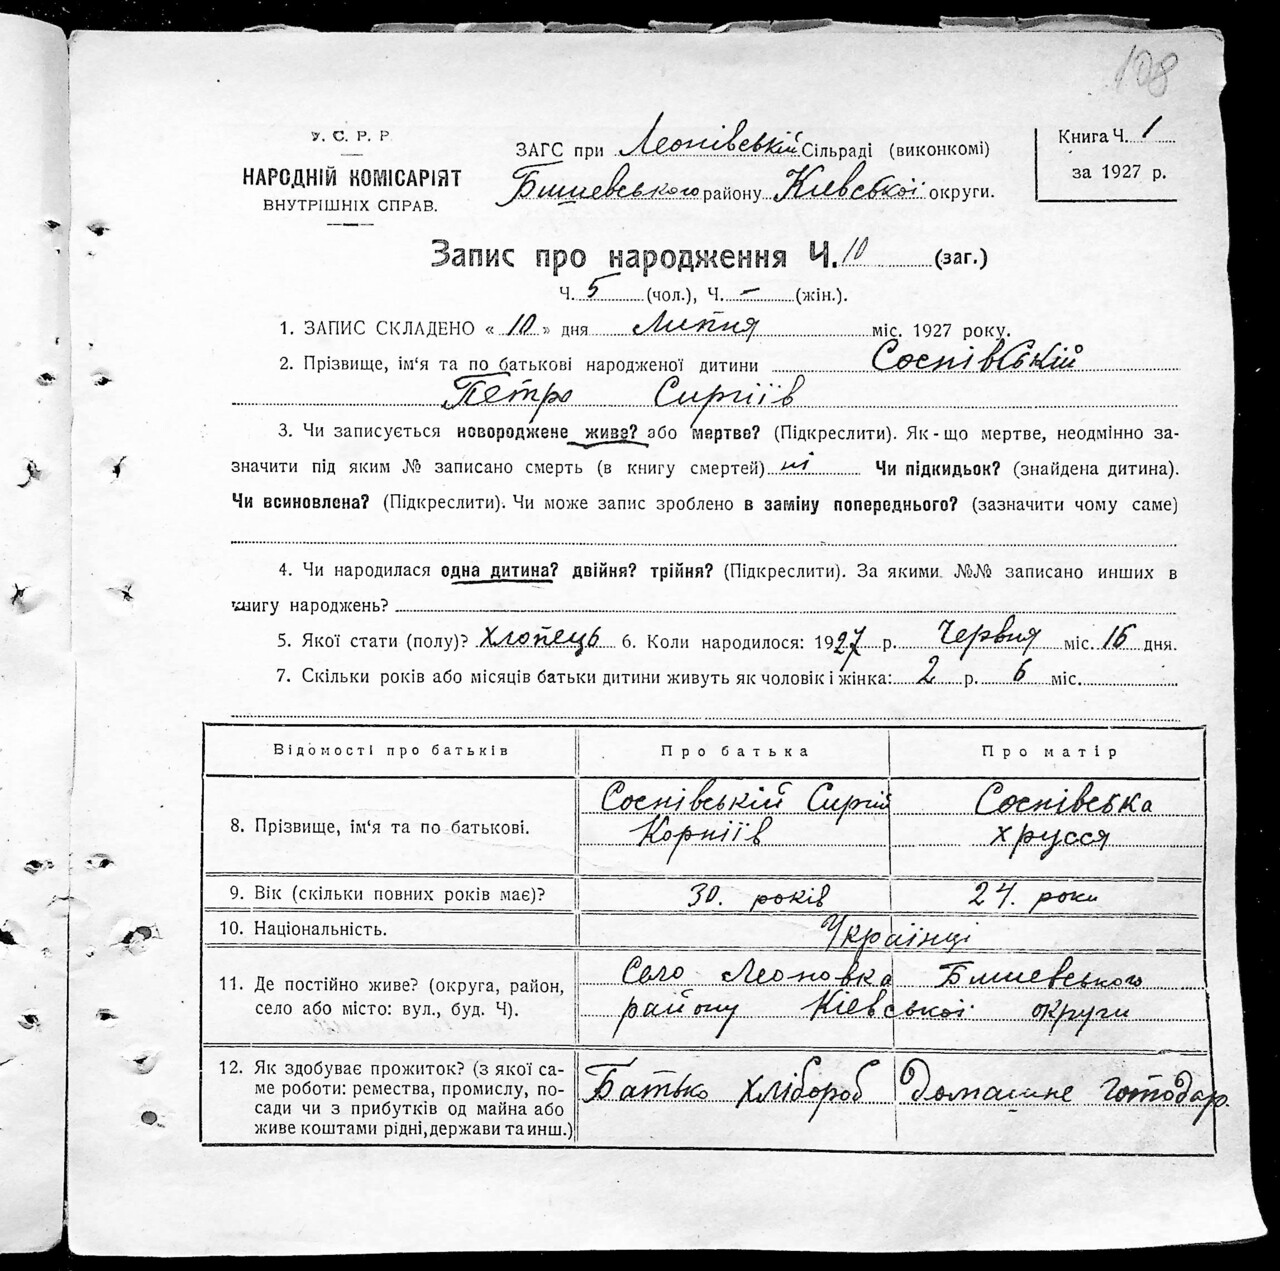 108
У. С. Р. Р.
НАРОДНІЙ КОМІСАРІЯТ
ВНУТРІШНІХ СПРАВ.
ЗАГС при Леонівській Сільраді (виконкомі)
Бишевського району Киевської округи.
Книга Ч. 1
за 1927 р.
Запис про народження Ч. 10 (заг.)
Ч. 5 (чол.), Ч. – (жін.).
1. ЗАПИС СКЛАДЕНО « 10 » дня Липня міс. 1927 року.
2. Прізвище, ім‘я та по батькові народженої дитини Соснівській
Петро Сиргіїв
3. Чи записується новороджене живе? або мертве? (Підкреслити). Як-що мертве, неодмінно за-
значити під яким № записано смерть (в книгу смертей) ні Чи підкидьок? (знайдена дитина).
Чи всиновлена? (Підкреслити). Чи може запис зроблено в заміну попереднього? (зазначити чому саме)
4. Чи народилася одна дитина? двійня? трійня? (Підкреслити). За якими №№ записано инших в
книгу народжень?
5. Якої стати (полу)? Хлопець 6. Коли народилося: 1927 р. Червня міс. 16 дня.
7. Скільки років або місяців батьки дитини живуть як чоловік і жінка: 2 р. 6 міс.
Відомості про батьків Про батька Про матір
8. Прізвище, ім‘я та по батькові. Соснівській Сиргій Корніїв Соснівська Хруся
9. Вік (скільки повних років має)? 30. років 24. роки
10. Національність. Українці
11. Де постійно живе? (округа, район, Село Леоновка Бишевського
село або місто: вул., буд. Ч). району Кіевської округи
12. Як здобуває прожиток? (з якої са- Батько хлібороб Домашне господар.
ме роботи: ремества, промислу, по-
сади чи з прибутків од майна або
живе коштами рідні, держави та инш.)